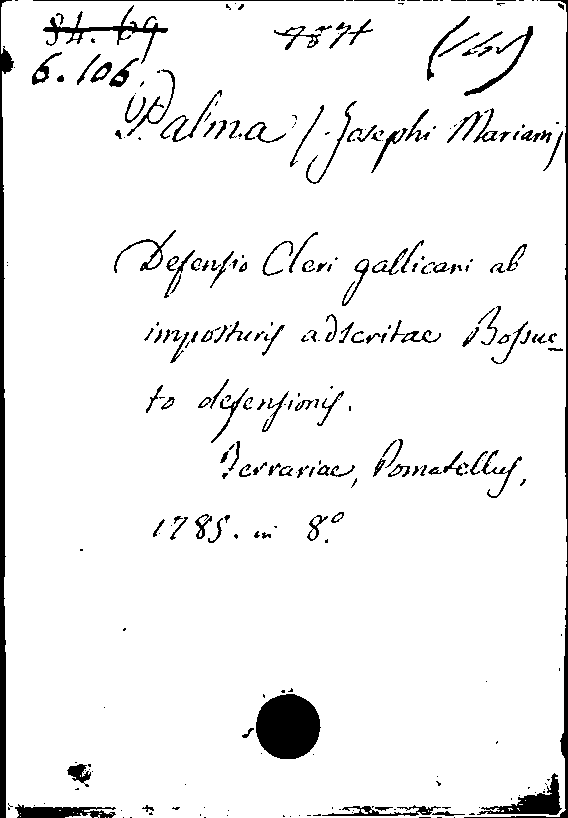 84. 69
6.106.
Palma /. Josephi Mariani,
Defensio Cleri gallicani ab
imposturis adscritae Bossue-
to defensionis.
Ferrariae, Pomatellus,
1785. in 8.º